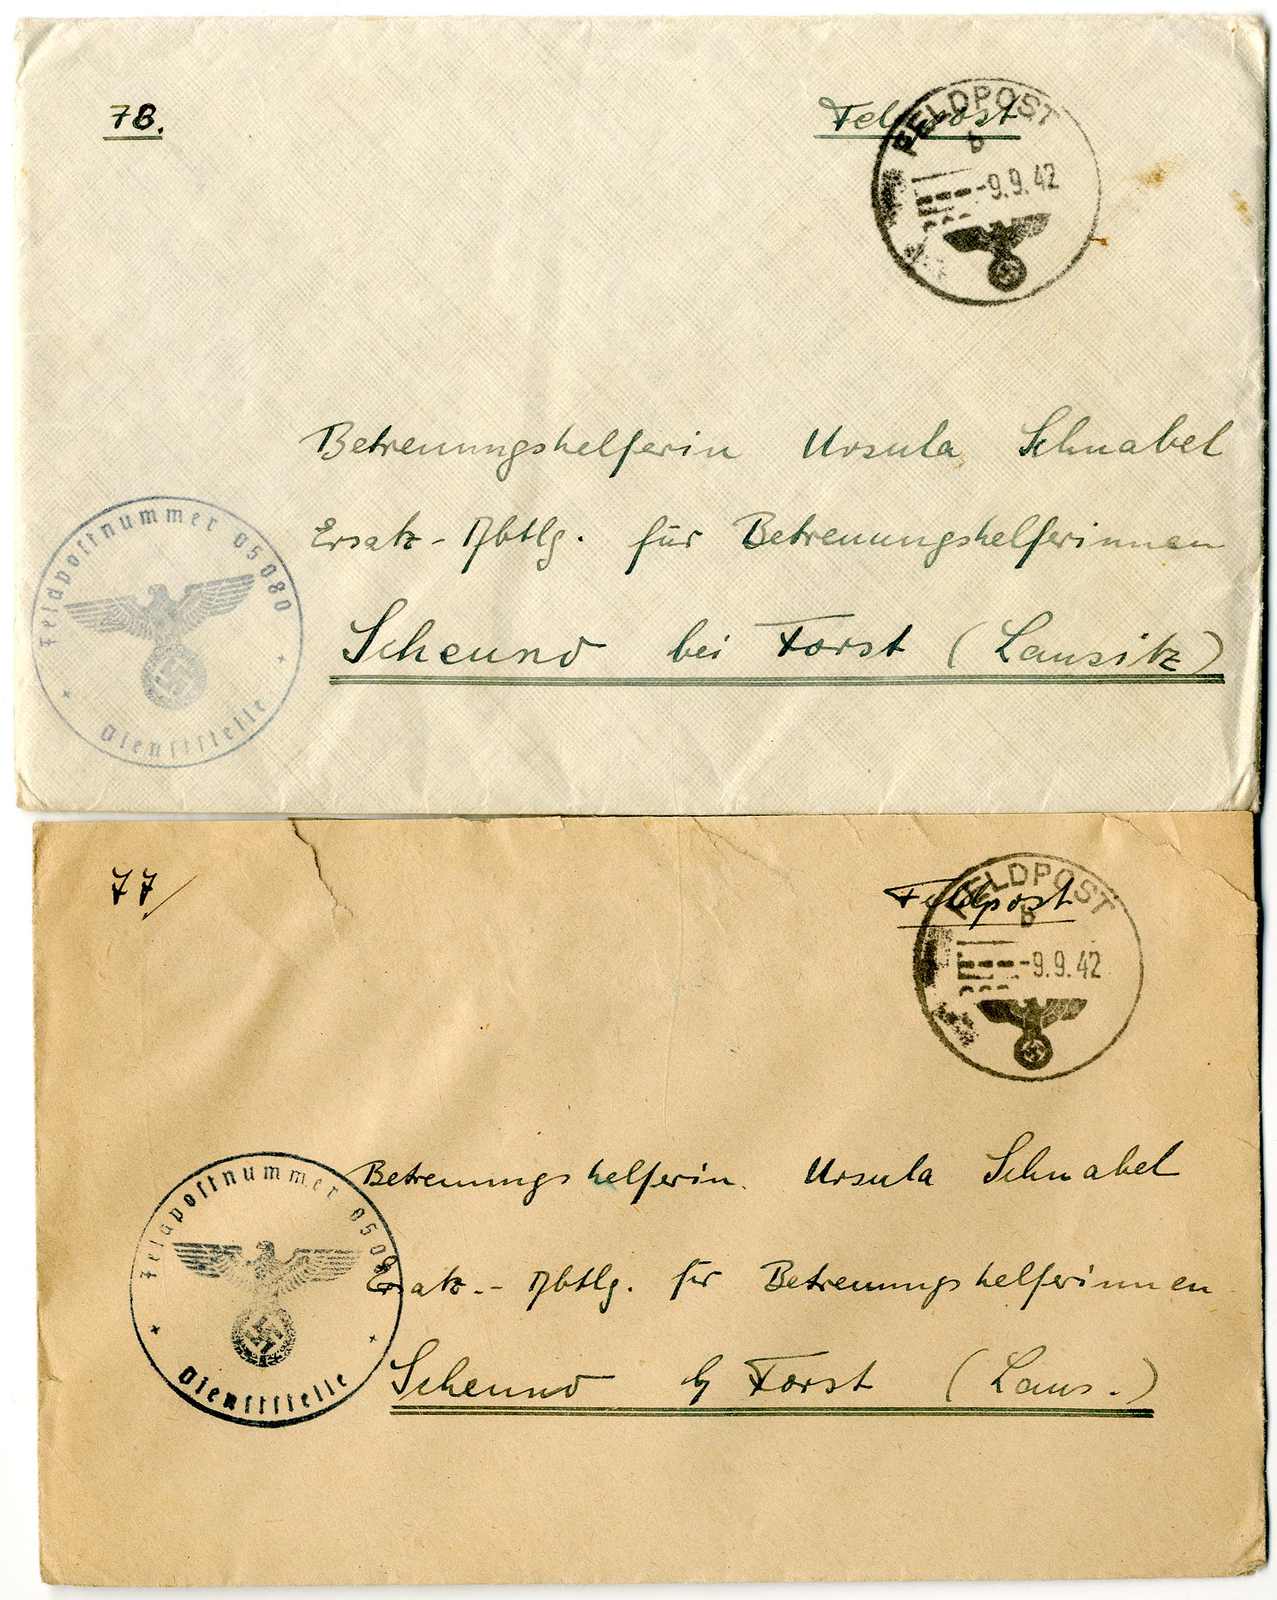 78.
Feldpost
FELDPOST
b
-9.9.42
Betreuungshelferin Ursula Schnabel
Ersatz-Abtlg. für Betreuungshelferinnen
Scheuno bei Forst (Lausitz)
Feldpostnummer 05080
Dienststelle
77/
Feldpost
FELDPOST
b
-9.9.42
Betreuungshelferin. Ursula Schnabel
Ersatz.-Abtlg. für Betreuungshelferinnen
Scheuno b/ Forst (Laus.)
Feldpostnummer 05080
Dienststelle